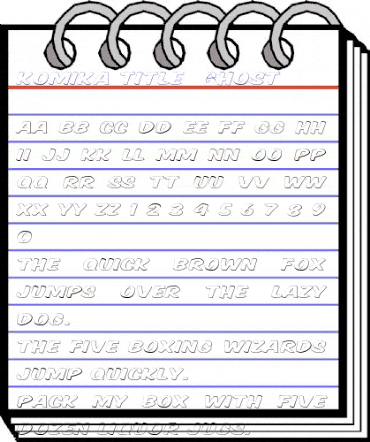 KOMIKA TITLE GHOST
AA BB CC DD EE FF GG HH
II JJ KK LL MM NN OO PP
QQ RR SS TT UU VV WW
XX YY ZZ 1 2 3 4 5 6 7 8 9
0
THE QUICK BROWN FOX
JUMPS OVER THE LAZY
DOG.
THE FIVE BOXING WIZARDS
JUMP QUICKLY.
PACK MY BOX WITH FIVE
DOZEN LIQUOR JUGS.